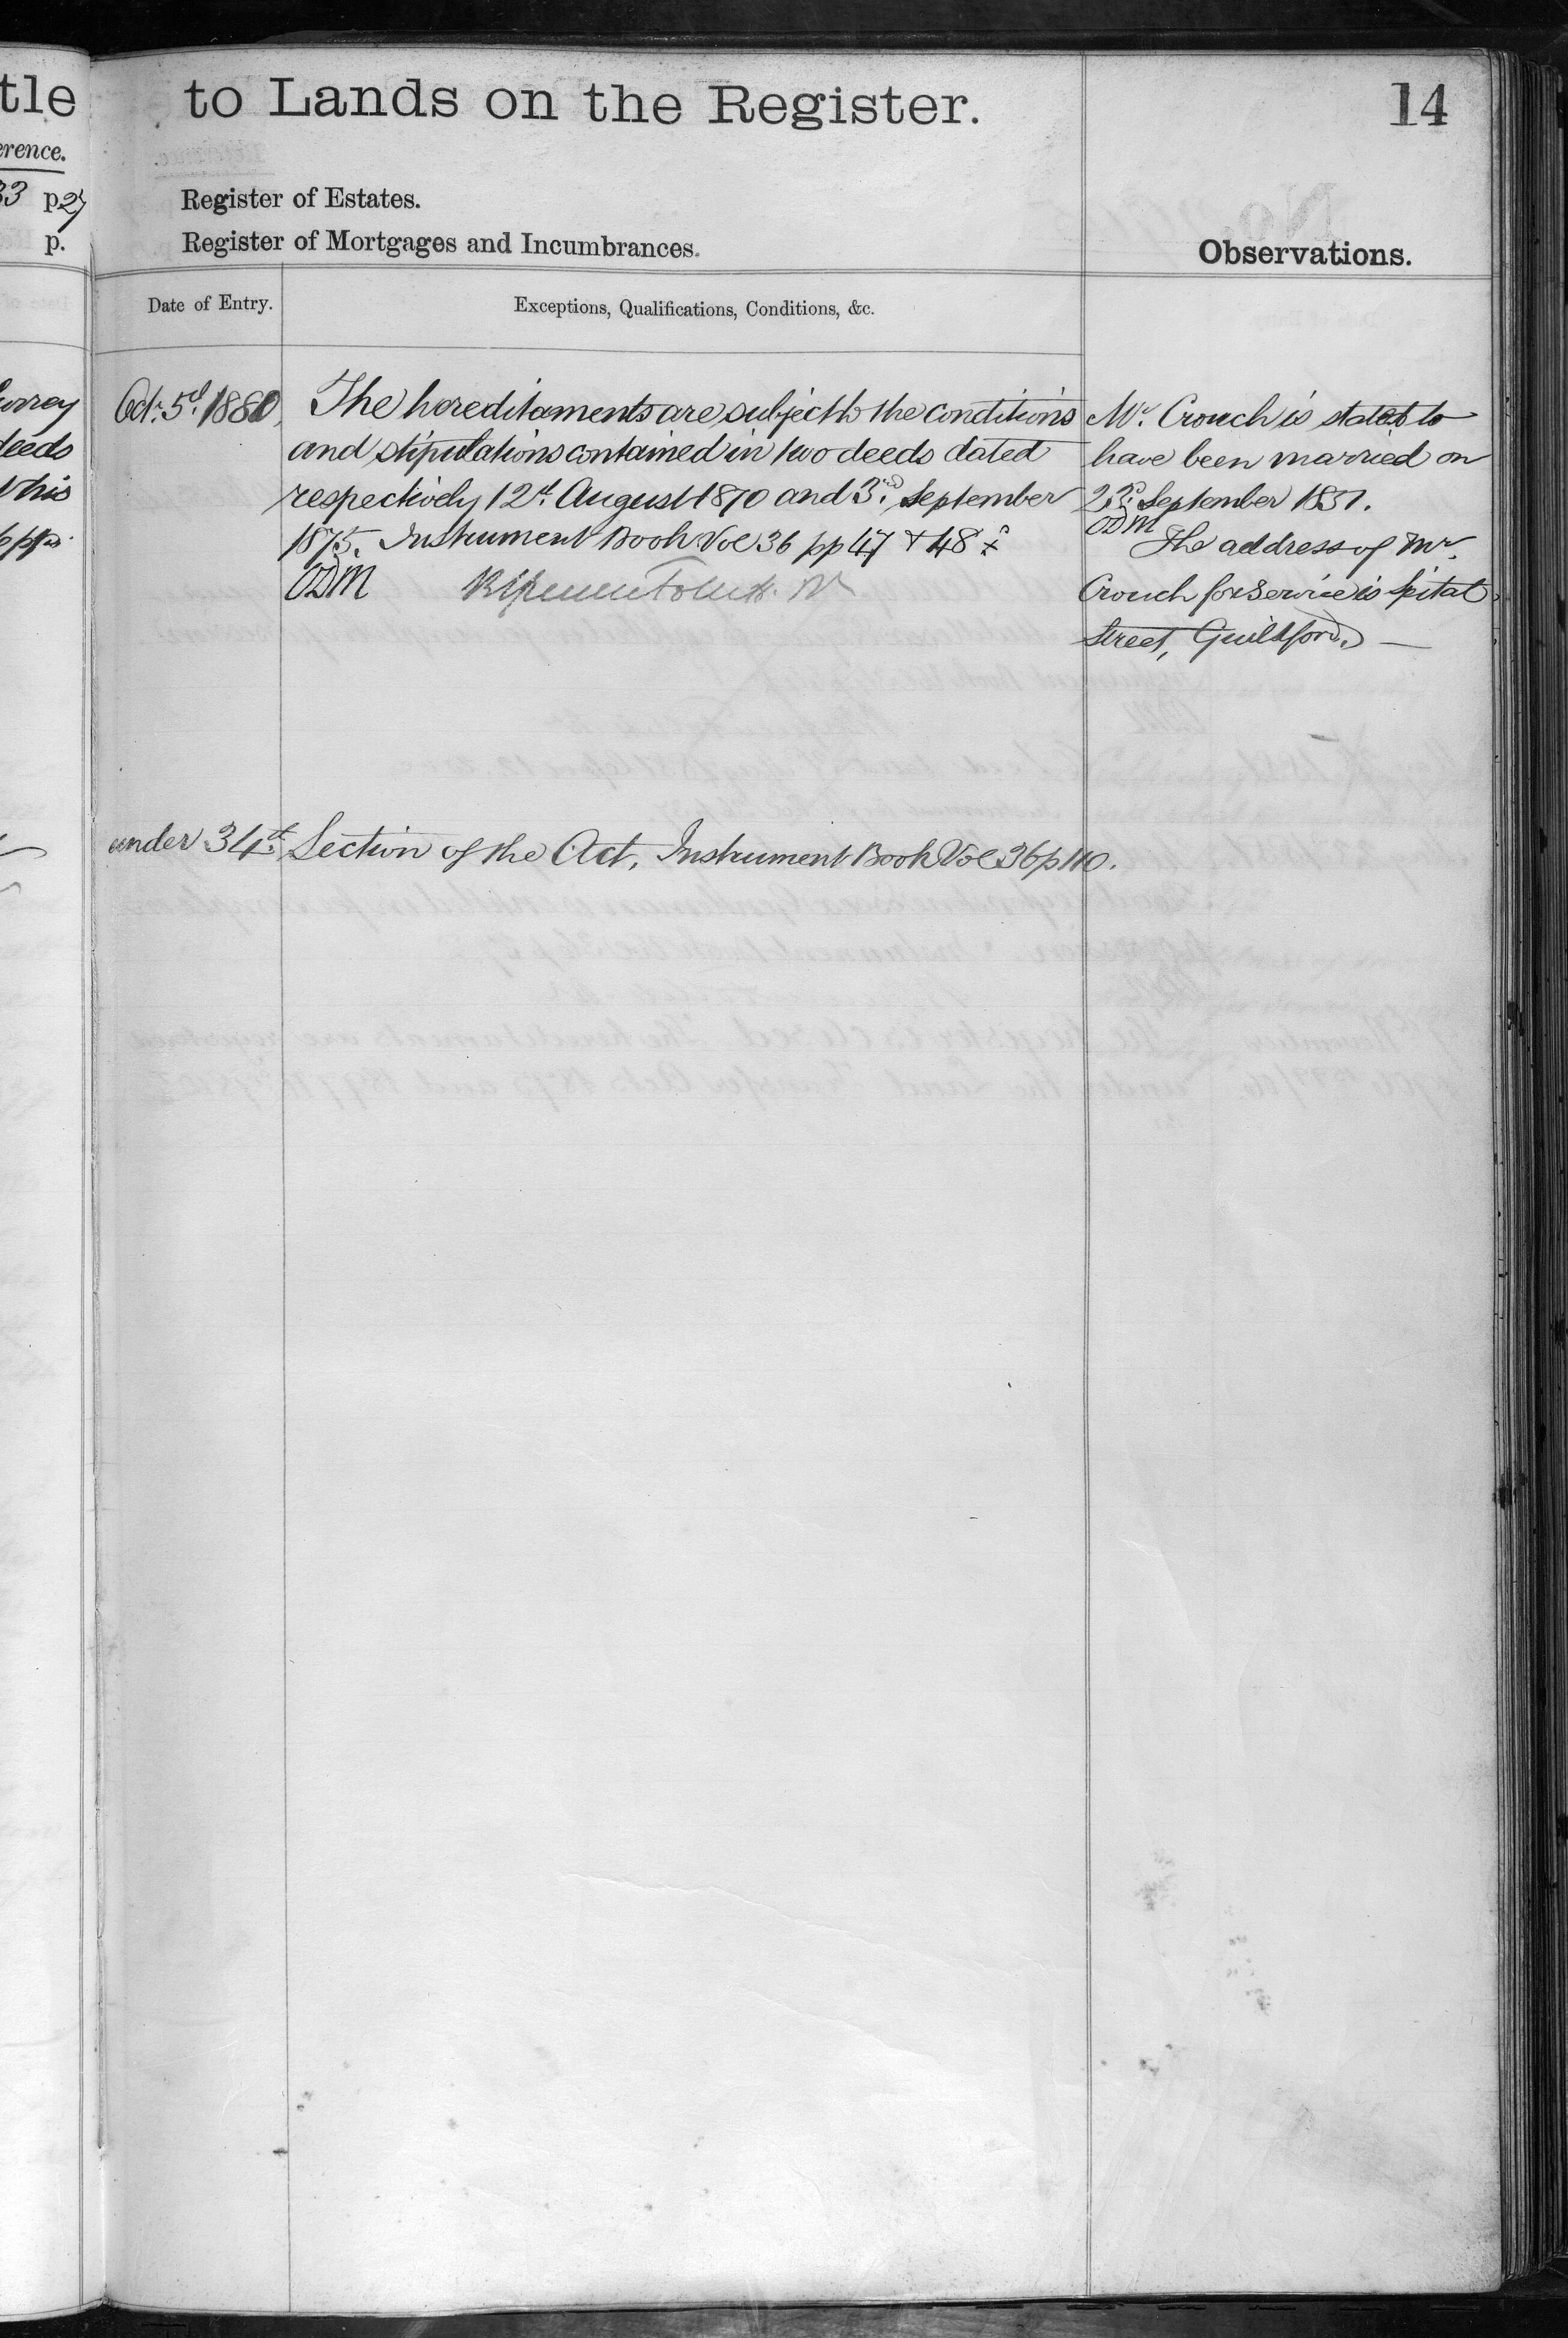 tle to Lands on the Register. 14
erence.
33 p27 Register of Estates.
p. Register of Mortgages and Incumbrances. Observations.
Date of Entry. Exceptions, Qualifications, Conditions, &c.
Oct. 5th 1880 The hereditaments are subject to the conditions
and stipulations contained in two deeds dated
respectively 12th August 1870 and 3rd September
1875. Instrument Book Vol 36 pp 47 & 48
ODM
Mr. Crouch is stated to
have been married on
23rd September 1831.
ODM
The address of Mr.
Crouch for service is Spital
Street, Guildford. —
urrey
deeds
this
under 34th Section of the Act, Instrument Book Vol 36 p 110.